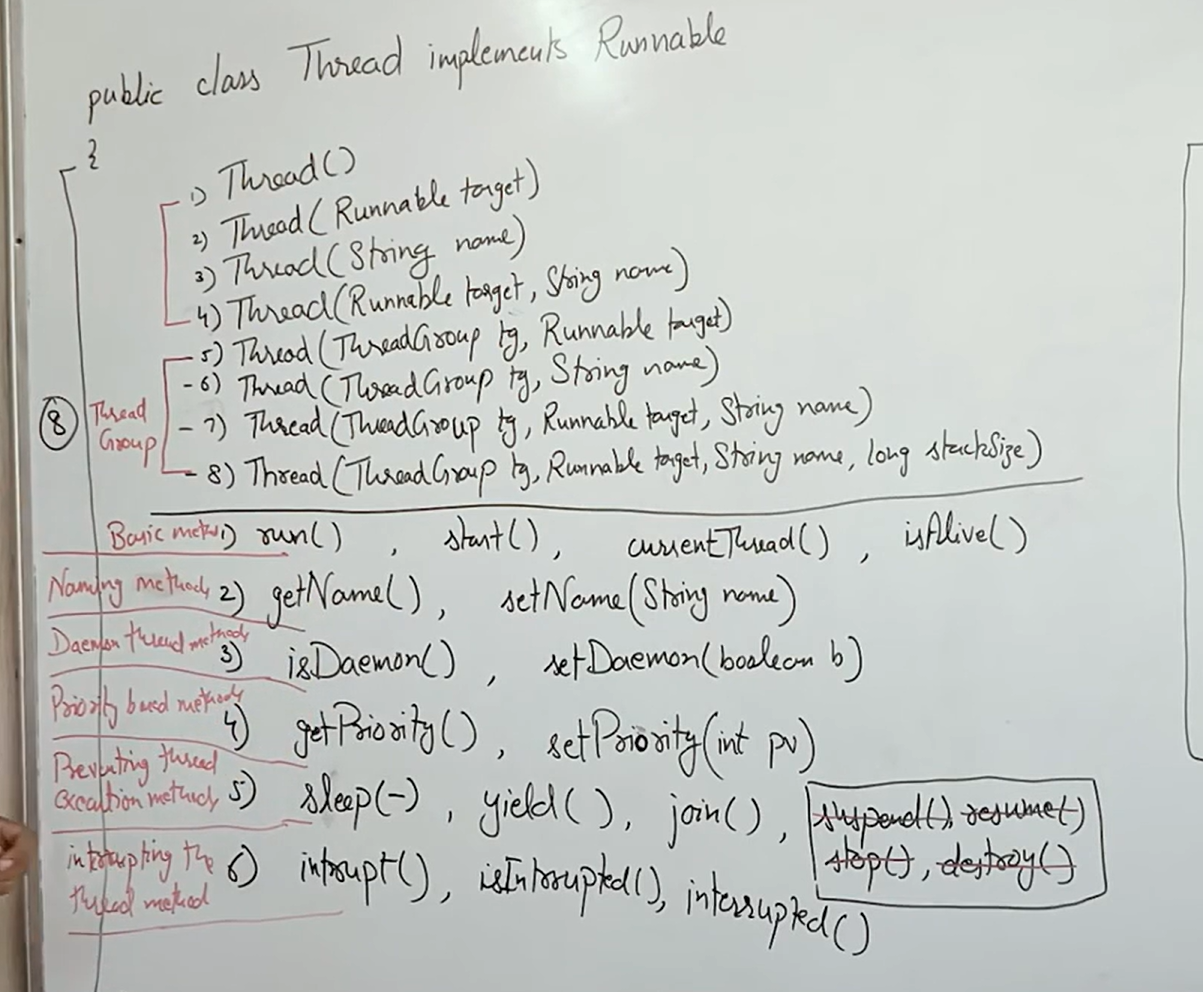 public class Thread implements Runnable
{
1) Thread()
2) Thread(Runnable target)
3) Thread(String name)
4) Thread(Runnable target, String name)
5) Thread(ThreadGroup tg, Runnable target)
-6) Thread(ThreadGroup tg, String name)
8 Thread Group
- 7) Thread(ThreadGroup tg, Runnable target, String name)
- 8) Thread(ThreadGroup tg, Runnable target, String name, long stackSize)
Basic 1) run() , start(), currentThread() , isAlive()
Naming methods 2) getName(), setName(String name)
Daemon thread methods 3) isDaemon() , setDaemon(boolean b)
Priority based methods 4) getPriority() , setPriority(int pv)
Preventing thread execution methods 5) sleep(-) , yield(), join(), suspend(), resume()
stop(), destroy()
interrupting the thread method 6) intrrupt(), isIntrrupted(), interrupted()